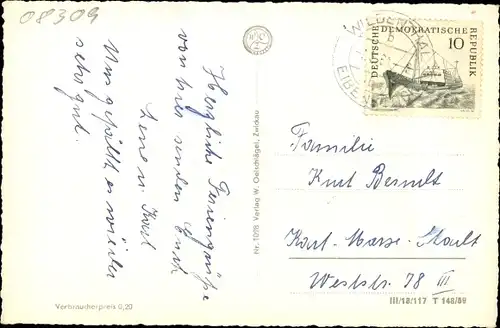 08309
Herzliche Feriengrüße
von hier senden Euch
Lene u. Karl
Uns gefällt es wieder
sehr gut.
Verbraucherpreis 0,20
Nr. 1098 Verlag W. Oelschlägel, Zwickau
WILDENTHAL
b
EIBENST
DEUTSCHE DEMOKRATISCHE REPUBLIK
10
Familie
Kurt Berndt
Karl-Marx-Stadt
Weststr. 78 III
III/18/117 T 148/59